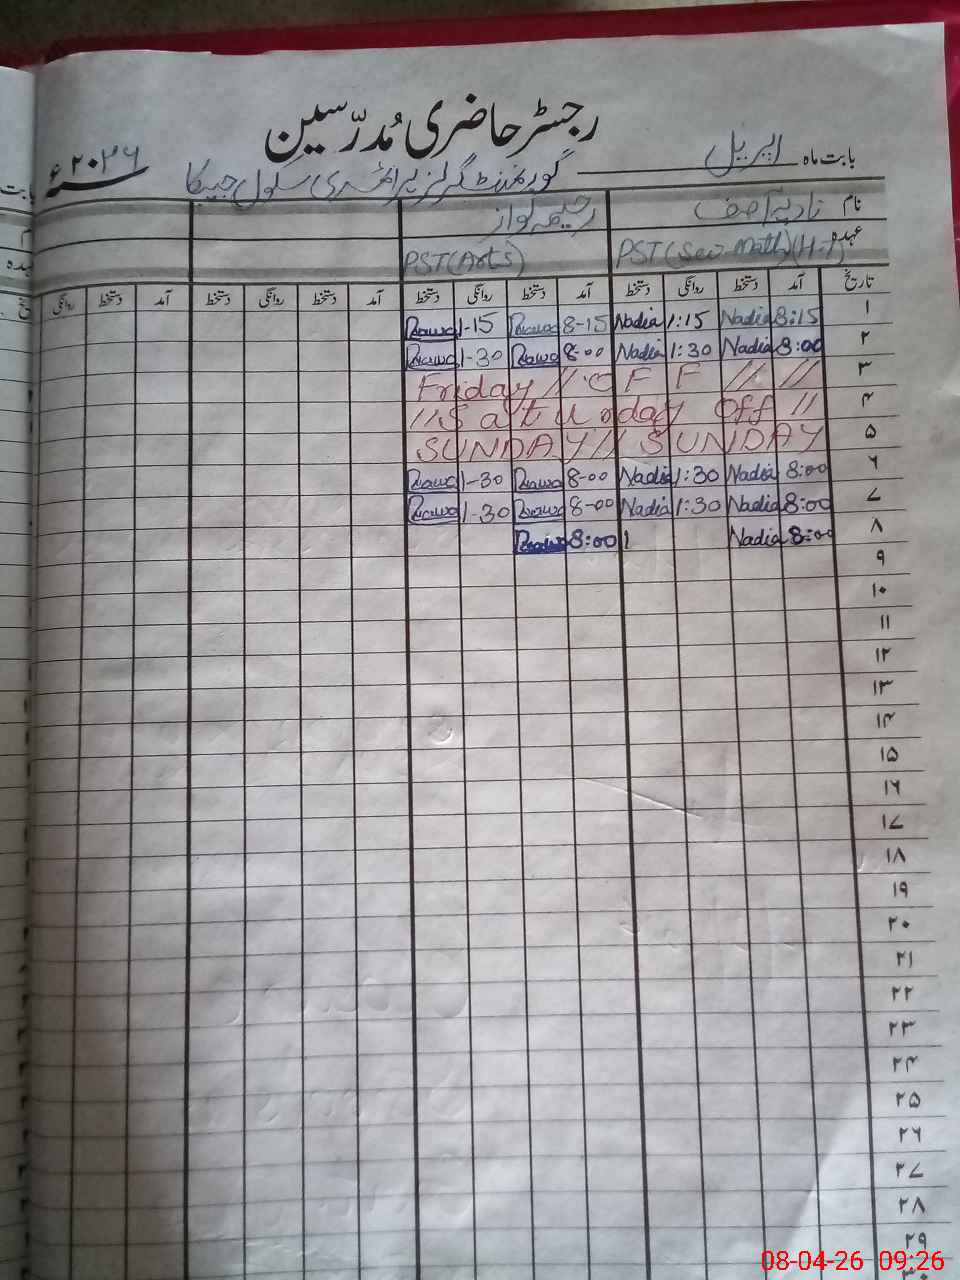 رجسٹر حاضری مُدرّسین
بابت ماہ اپریل گورنمنٹ گرلز پرائمری سکول ۲۰۲۶ء
نام نادیہ آصف رحیمہ نواز
عہدہ PST (Sci-Math) (H-T) PST (Arts)
تاریخ آمد دستخط روانگی دستخط آمد دستخط روانگی دستخط آمد دستخط روانگی دستخط آمد دستخط روانگی
۱ 8:15 Nadia 1:15 Nadia 8-15 1-15
۲ 8:00 Nadia 1:30 Nadia 8-00 1-30
۳ Friday // OFF // //
۴ // Saturday Off //
۵ SUNDAY // SUNDAY
۶ 8:00 Nadia 1:30 Nadia 8-00 1-30
۷ 8:00 Nadia 1:30 Nadia 8-00 1-30
۸ 8:00 Nadia 8:00
۹
۱۰
۱۱
۱۲
۱۳
۱۴
۱۵
۱۶
۱۷
۱۸
۱۹
۲۰
۲۱
۲۲
۲۳
۲۴
۲۵
۲۶
۲۷
۲۸
۲۹
۳۰
08-04-26 09:26